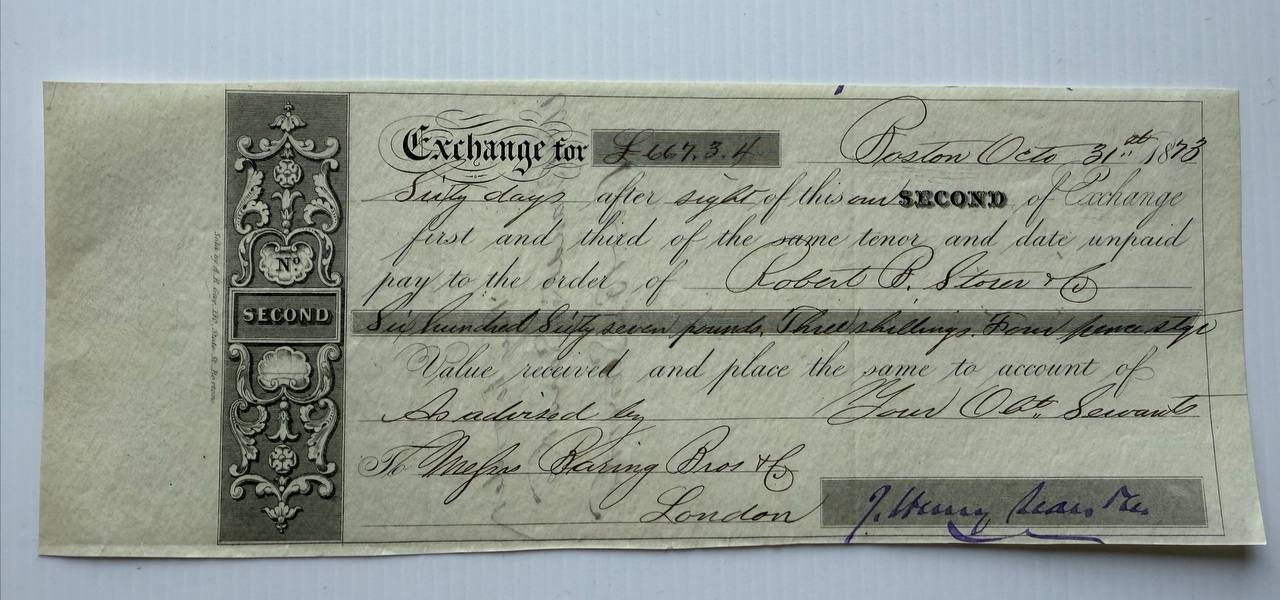 Exchange for £667.3.4 Boston Octo 31st 1873
Sixty days after sight of this our SECOND of Exchange
first and third of the same tenor and date unpaid
pay to the order of Robert B. Storer & Co
Six hundred Sixty seven pounds. Three shillings. Four pence stge
Value received and place the same to account of
As advised by Your Obt. Servants
To Messrs Baring Bros & Co
London J. Henry Sears
No
SECOND
State St. Boston